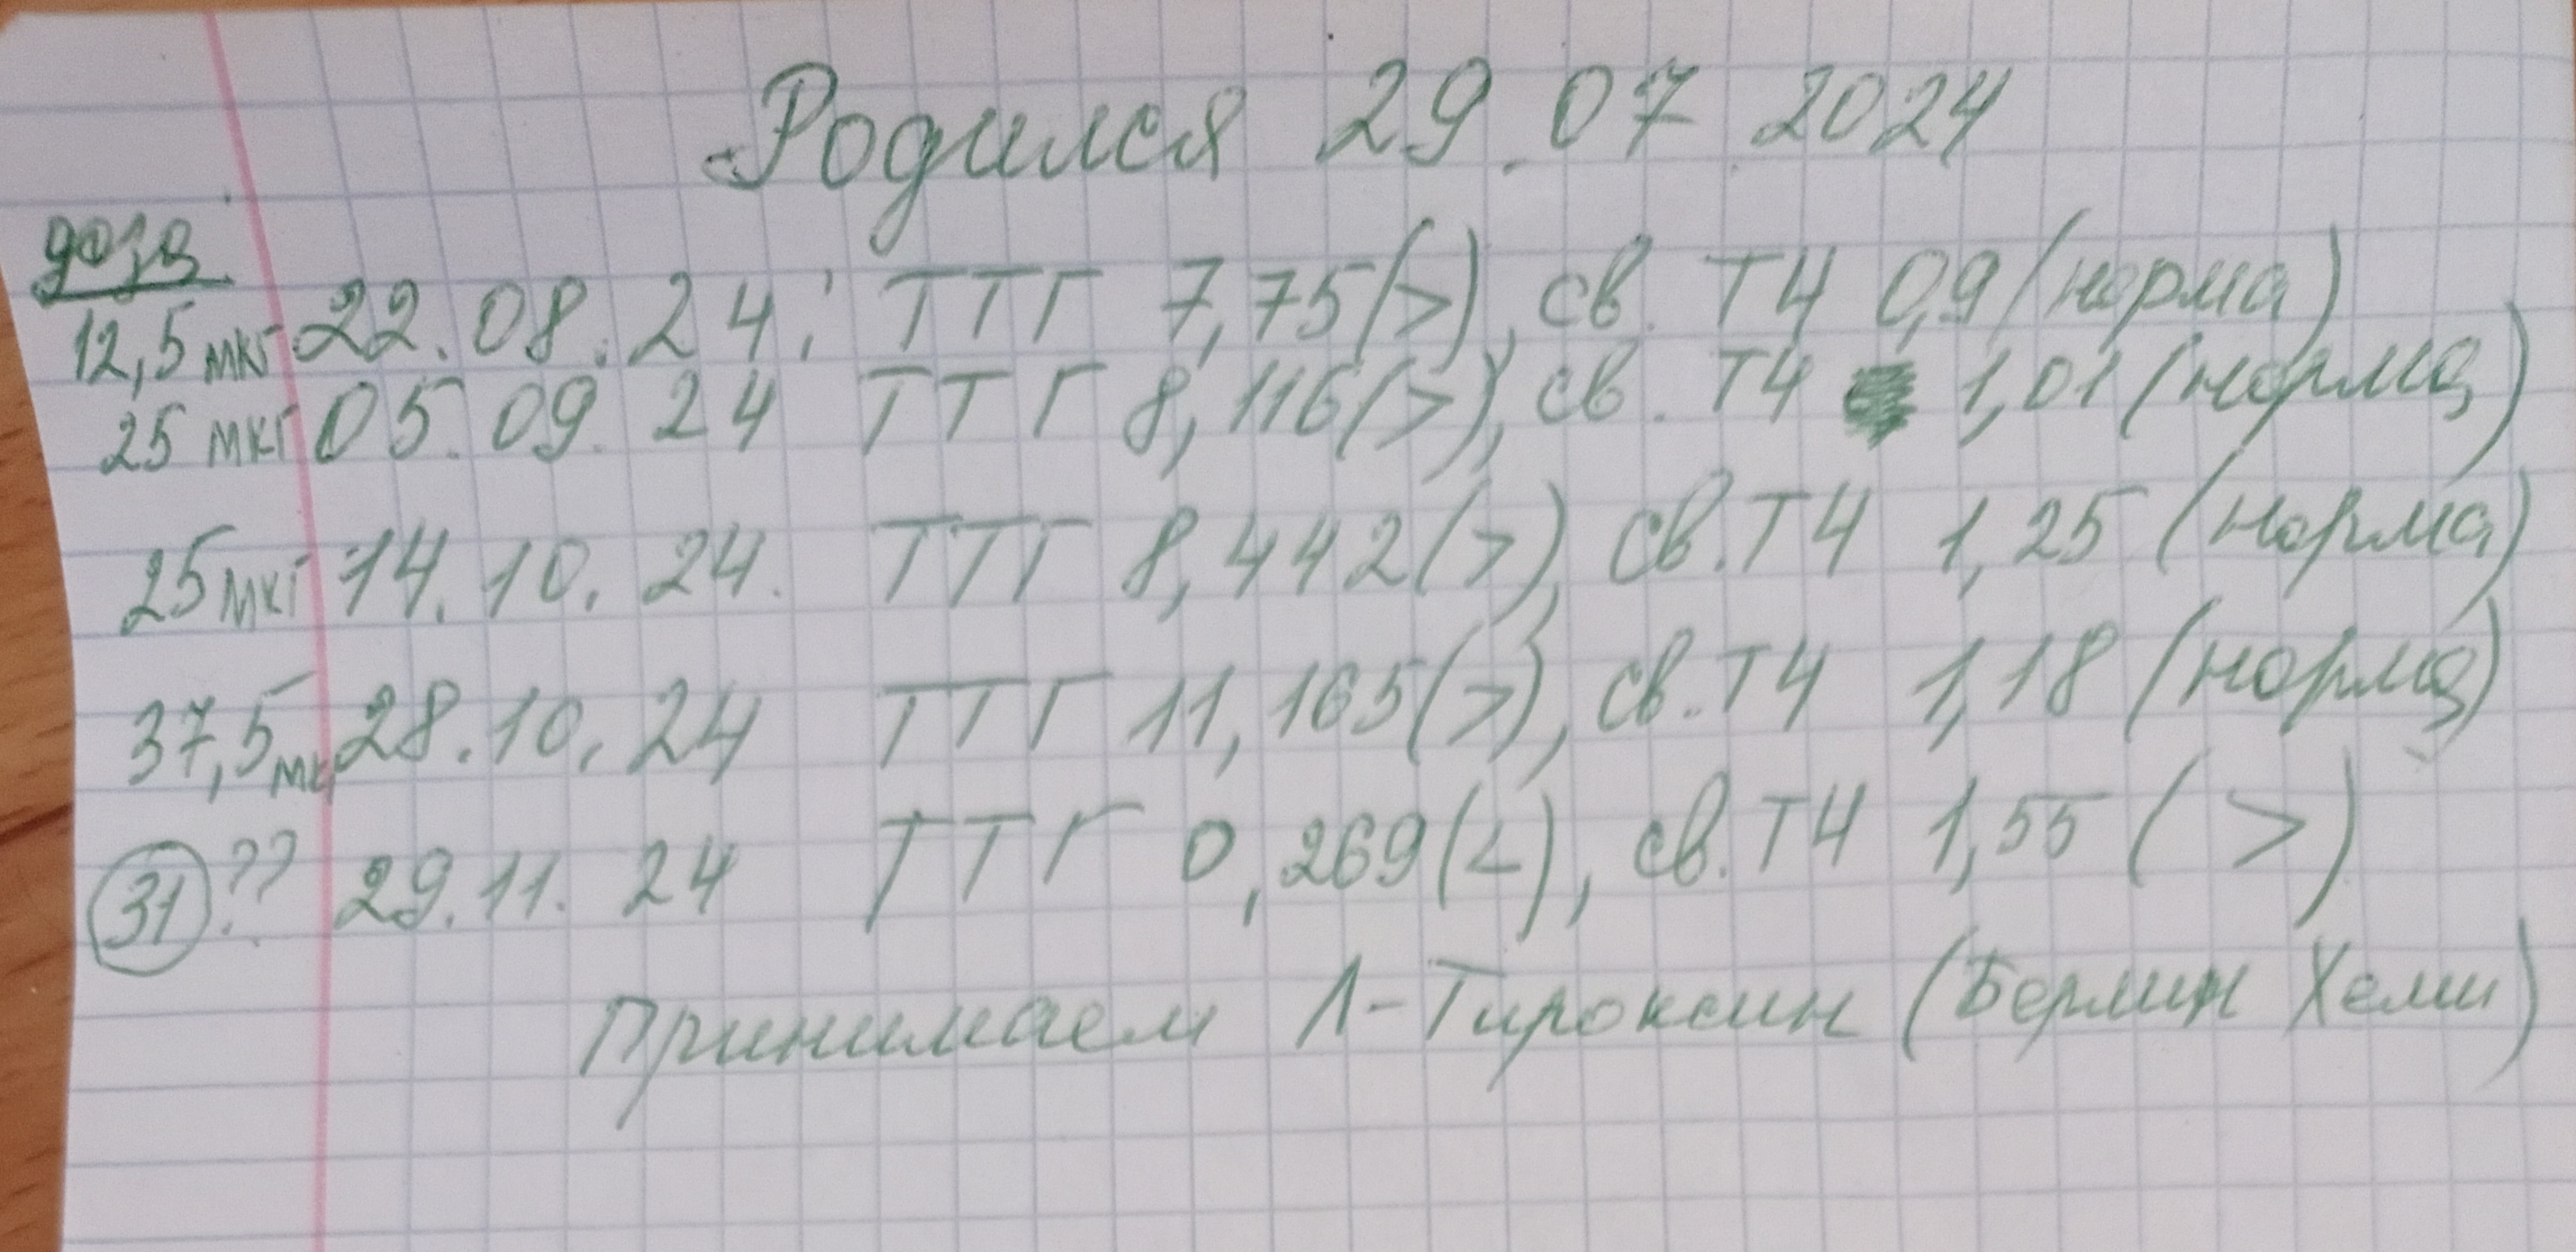 Родился 29.07.2024
доза
12,5 мкг 22.08.24: ТТГ 7,75(>), св. Т4 0,9 (норма)
25 мкг 05.09.24 ТТГ 8,116(>), св. Т4 1,01 (норма)
25 мкг 14.10.24. ТТГ 8,442(>), св. Т4 1,25 (норма)
37,5 мкг 28.10.24 ТТГ 11,165(>), св. Т4 1,18 (норма)
31 ?? 29.11.24 ТТГ 0,269(<), св. Т4 1,55 (>)
Принимаем Л-Тироксин (Берлин Хеми)